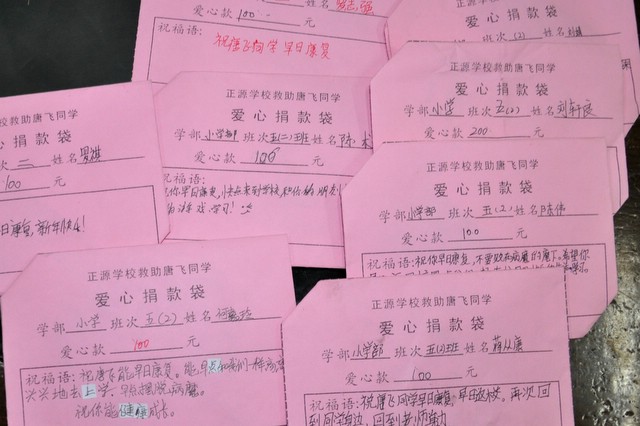 爱心款 100 元
祝福语:
祝唐飞同学早日康复
爱心捐款袋
班次 (2) 姓名
正源学校救助唐飞同学
爱心捐款袋
学部 小学 班次 五(2) 姓名 刘轩良
爱心款 200 元
正源学校救助唐飞同学
爱心捐款袋
学部 小学部 班次 五(二)班 姓名 陈
爱心款 100 元
祝福语:
祝你早日康复,快点来到学校,和你的朋友
游戏学习!
学校救助唐飞同学
心捐款袋
次 二 姓名
100 元
日康复,新年快乐!
正源学校救助唐飞同学
爱心捐款袋
学部 小学部 班次 五(2) 姓名 陈伟
爱心款 100 元
祝福语:祝你早日康复,不要败在病魔的魔下。希望你
学习。
正源学校救助唐飞同学
爱心捐款袋
学部 小学 班次 五(2) 姓名
爱心款 100 元
祝福语:祝唐飞能早日康复。能早点和我们一样高高
兴兴地去上学。早点摆脱病魔。
祝你能健康成长。
正源学校救助唐飞同学
爱心捐款袋
学部 小学部 班次 五(2)班 姓名 薛从唐
爱心款 100 元
祝福语:祝唐飞同学早日康复、早日返校。再次回
到同学身边,回到老师身边